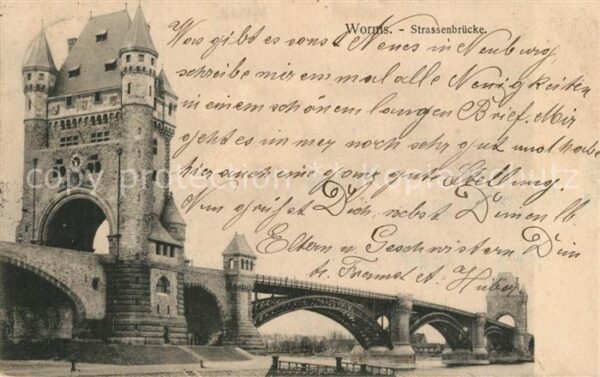 Worms. - Strassenbrücke.
Was gibt es sonst Neues in Neuburg
schreibe mir einmal alle Neuigkeiten
in einem schönen langen Brief. Mir
geht es immer noch sehr gut und habe
hier auch eine ganz gute Stellung
Nun grüßet Dich, nebst Deinen lb.
Eltern u. Geschwistern Dein
tr. Freund A. Huber